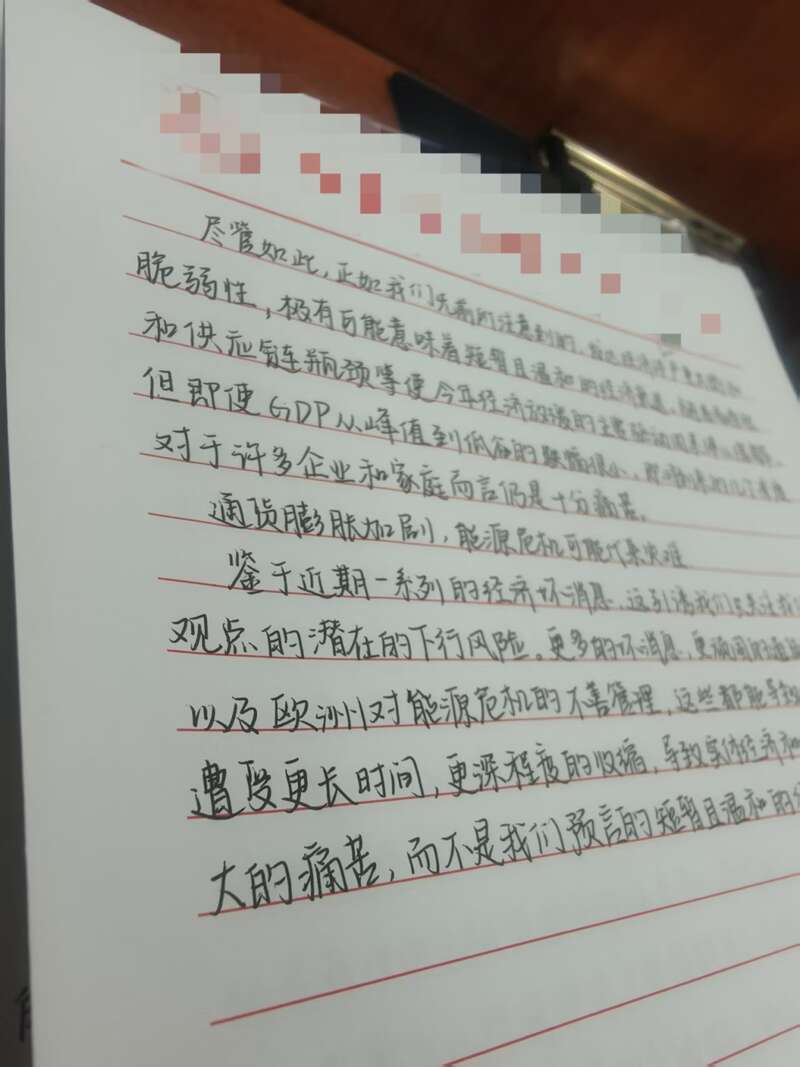 尽管如此,正如我们先前所注意到的,发达经济体严重的
脆弱性,极有可能意味着短暂且温和的经济衰退,
和供应链瓶颈等使今年经济放缓的主要驱动因素得以缓解。
但即使GDP从峰值到低谷的跌幅很小,即将到来的几个季度
对于许多企业和家庭而言仍是十分痛苦。
通货膨胀加剧,能源危机可能代来灾难
鉴于近期一系列的经济坏消息,这引诱我们去关注我们
观点的潜在的下行风险。更多的坏消息,更顽固的通
以及欧洲对能源危机的不善管理,这些都能导致
遭受更长时间,更深程度的收缩,导致实体经济和
大的痛苦,而不是我们预言的短暂且温和的